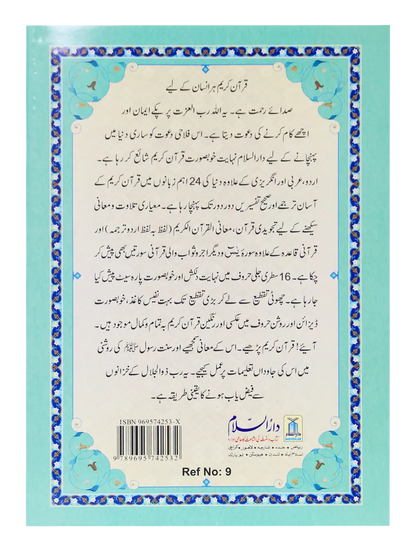 قرآن کریم ہر انسان کے لیے
صدائے رحمت ہے۔ یہ اللہ رب العزت پر پکے ایمان اور
اچھے کام کرنے کی دعوت دیتا ہے۔ اس فلاحی دعوت کو ساری دنیا میں
پہنچانے کے لیے دارالسلام نہایت خوبصورت قرآن کریم شائع کر رہا ہے۔
اردو، عربی اور انگریزی کے علاوہ دنیا کی 24 اہم زبانوں میں قرآن کریم کے
آسان ترجمے اور صحیح تفسیریں دور دور تک پہنچا رہا ہے۔ معیاری تلاوت و معانی
سیکھنے کے لیے تجویدی قرآن، معانی القرآن الکریم (لفظ بہ لفظ اردو ترجمہ) اور
قرآنی قاعدہ کے علاوہ سورۂ یٰسٓ و دیگر اجر و ثواب والی قرآنی سورتیں بھی پیش کر
چکا ہے۔ 16 سطری جلی حروف میں نہایت دلکش اور خوبصورت پارہ سیٹ پیش کیا
جا رہا ہے۔ چھوٹی تقطیع سے لے کر بڑی تقطیع تک بہت نفیس کاغذ، خوبصورت
ڈیزائن اور روشن حروف میں عکسی اور رنگین قرآن کریم بہ تمام و کمال موجود ہیں۔
آیئے! قرآن کریم پڑھیے۔ اس کے معانی سمجھیے اور سنت رسول ﷺ کی روشنی
میں اس کی جاوداں تعلیمات پر عمل کیجیے۔ یہ رب ذوالجلال کے خزانوں
سے فیض یاب ہونے کا یقینی طریقہ ہے۔
ISBN 969574253-X
9 789695 742532
دارالسلام
Ref No: 9